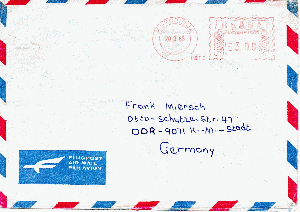 GHANA
Frank Miersch
Otto-Schutze-Str. 47
DDR-9071 K.-M.-Stadt
Germany
FLUGPOST
AIR MAIL
PAR AVION